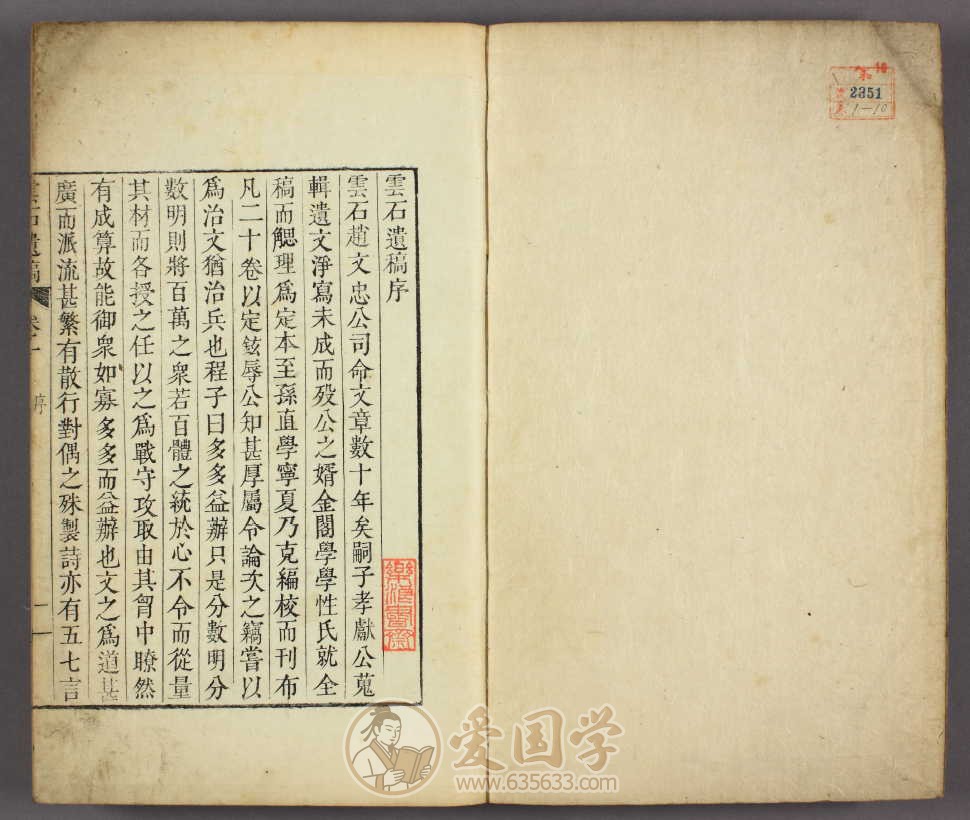 雲石遺稿序
雲石趙文忠公司命文章數十年矣嗣子孝獻公蒐
輯遺文淨寫未成而殁公之婿金閣學學性氏就全
稿而鰓理爲定本至孫直學寧夏乃克編校而刊布
凡二十卷以定鉉辱公知甚厚屬令論次之竊嘗以
爲治文猶治兵也程子曰多多益辦只是分數明分
數明則將百萬之衆若百體之統於心不令而從量
其材而各授之任以之爲戰守攻取由其胷中瞭然
有成算故能御衆如寡多多而益辦也文之爲道甚
廣而派流甚繁有散行對偶之殊製詩亦有五七言
雲石遺稿 序 一
10
2351
1—10
爱国学
www.635633.com